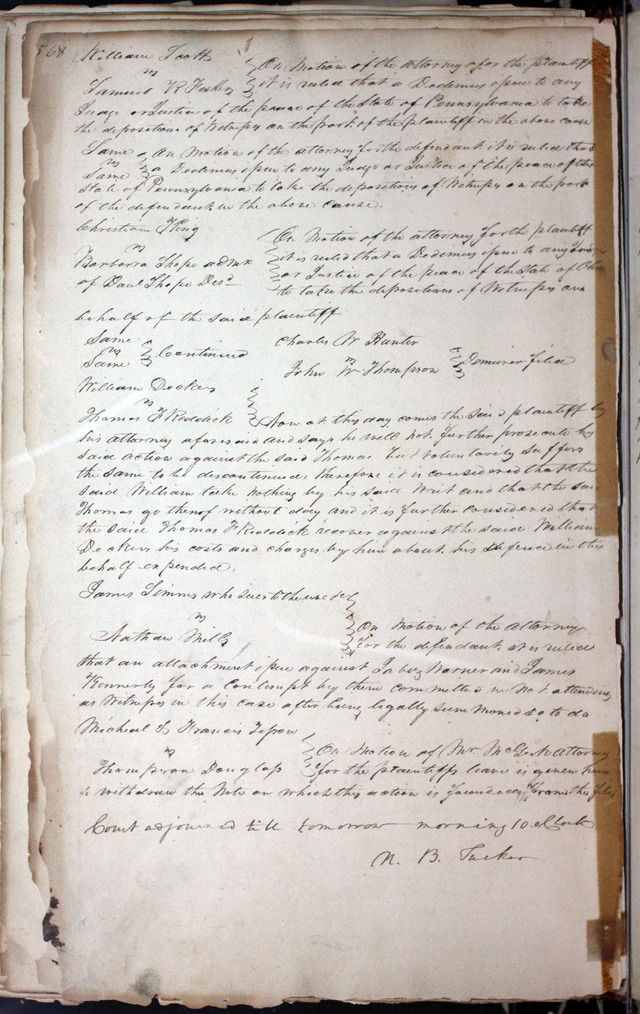 568
William Scott
vs
Samuel R
On Motion of the attorney for the plaintiff
it is ruled that a Dedimus issue to any
Judge or Justice of the peace of the State of Pennsylvania to take
the depositions of Witnesses on the part of the plaintiff in the above cause
Same
vs
Same
On Motion of the attorney for the defendant it is ruled that
a Dedimus issue to any Judge or Justice of the peace of the
State of Pennsylvania to take the depositions of Witnesses on the part
of the defendant in the above cause.
Christian King
vs
Barbarra Shope admx
of Davl Shope Decd
On Motion of the attorney for the plaintiff
it is ruled that a Dedimus issue to any
or Justice of the peace of the State of
to take the depositions of Witnesses on
behalf of the said plaintiff
Same
vs
Same
Continued
Charles W Hunter
vs
John W Thompson
Demurer filed
William Dockers
vs
Thomas F Riddick
Now at this day comes the said plaintiff by
his attorney aforesaid and says he will not further prosecute his
said action against the said Thomas but voluntarily suffers
the same to be discontinued therefore it is considered that the
said William take nothing by his said Writ and that the said
Thomas go thereof without day and it is further considered that
the said Thomas F Riddick recover against the said William
Dockers his costs and charges by him about his defence in this
behalf expended.
James Simms who sues to the use &c
vs
Nathan Mills
On Motion of the attorney
for the defendant it is ruled
that an attachment issue against Warner and James
Kennerly for a Contempt by them committed in not attending
as Witnesses in this case after being legally summoned so to do
Michael & Francis Tesson
vs
Thompson Douglass
On Motion of Mr McGirk Attorney
for the plaintiffs leave is given him
to withdraw the Note on which this action is founded from the files
Court adjourned till tomorrow morning 10 oClock
N. B. Tucker